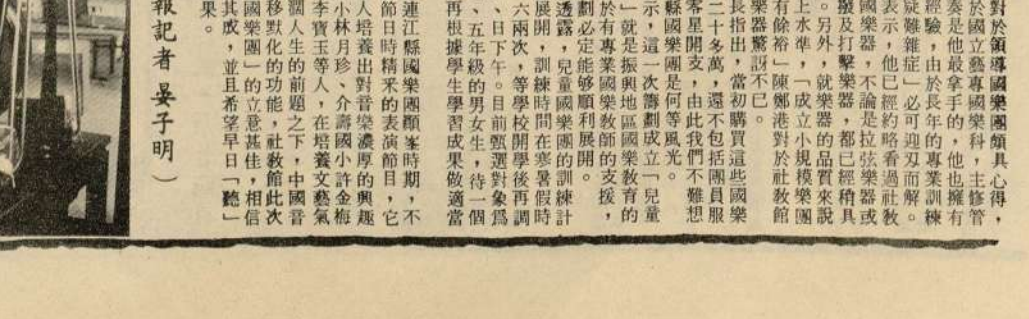 對於領導國樂團頗具心得，
於國立藝專國樂科，主修管
奏是他最拿手的，他也擁有
經驗，由於長年的專業訓練
疑難雜症」必可迎刃而解。
表示，他已經約略看過社教
國樂器，不論是拉弦樂器或
撥及打擊樂器，都已經稍具
。另外，就樂器的品質來說
上水準，「成立小規模樂團
有餘裕」陳鄭港對於社教館
樂器驚訝不已。
長指出，當初購買這些國樂
二十多萬，還不包括團員服
客星開支，由此我們不難想
縣國樂團是何等風光。
示，這一次籌劃成立「兒童
」就是振興地區國樂教育的
於有專業國樂教師的支援，
劃必定能夠順利展開。
透露，兒童國樂團的訓練計
展開，訓練時間在寒暑假時
六兩次，等學校開學後再調
、日下午。目前甄選對象為
、五年級的男女生，待一個
再根據學生學習成果做適當
連江縣國樂團顛峯時期，不
節日時精釆的表演節目，它
人培養出對音樂濃厚的興趣
小林月珍、介壽國小許金梅
李寶玉等人，在培養文藝氣
潤人生的前題之下，中國音
移默化的功能，社教館此次
國樂團」的立意甚佳，相信
其成，並且希望早日「聽」
果。
報記者 晏子明）